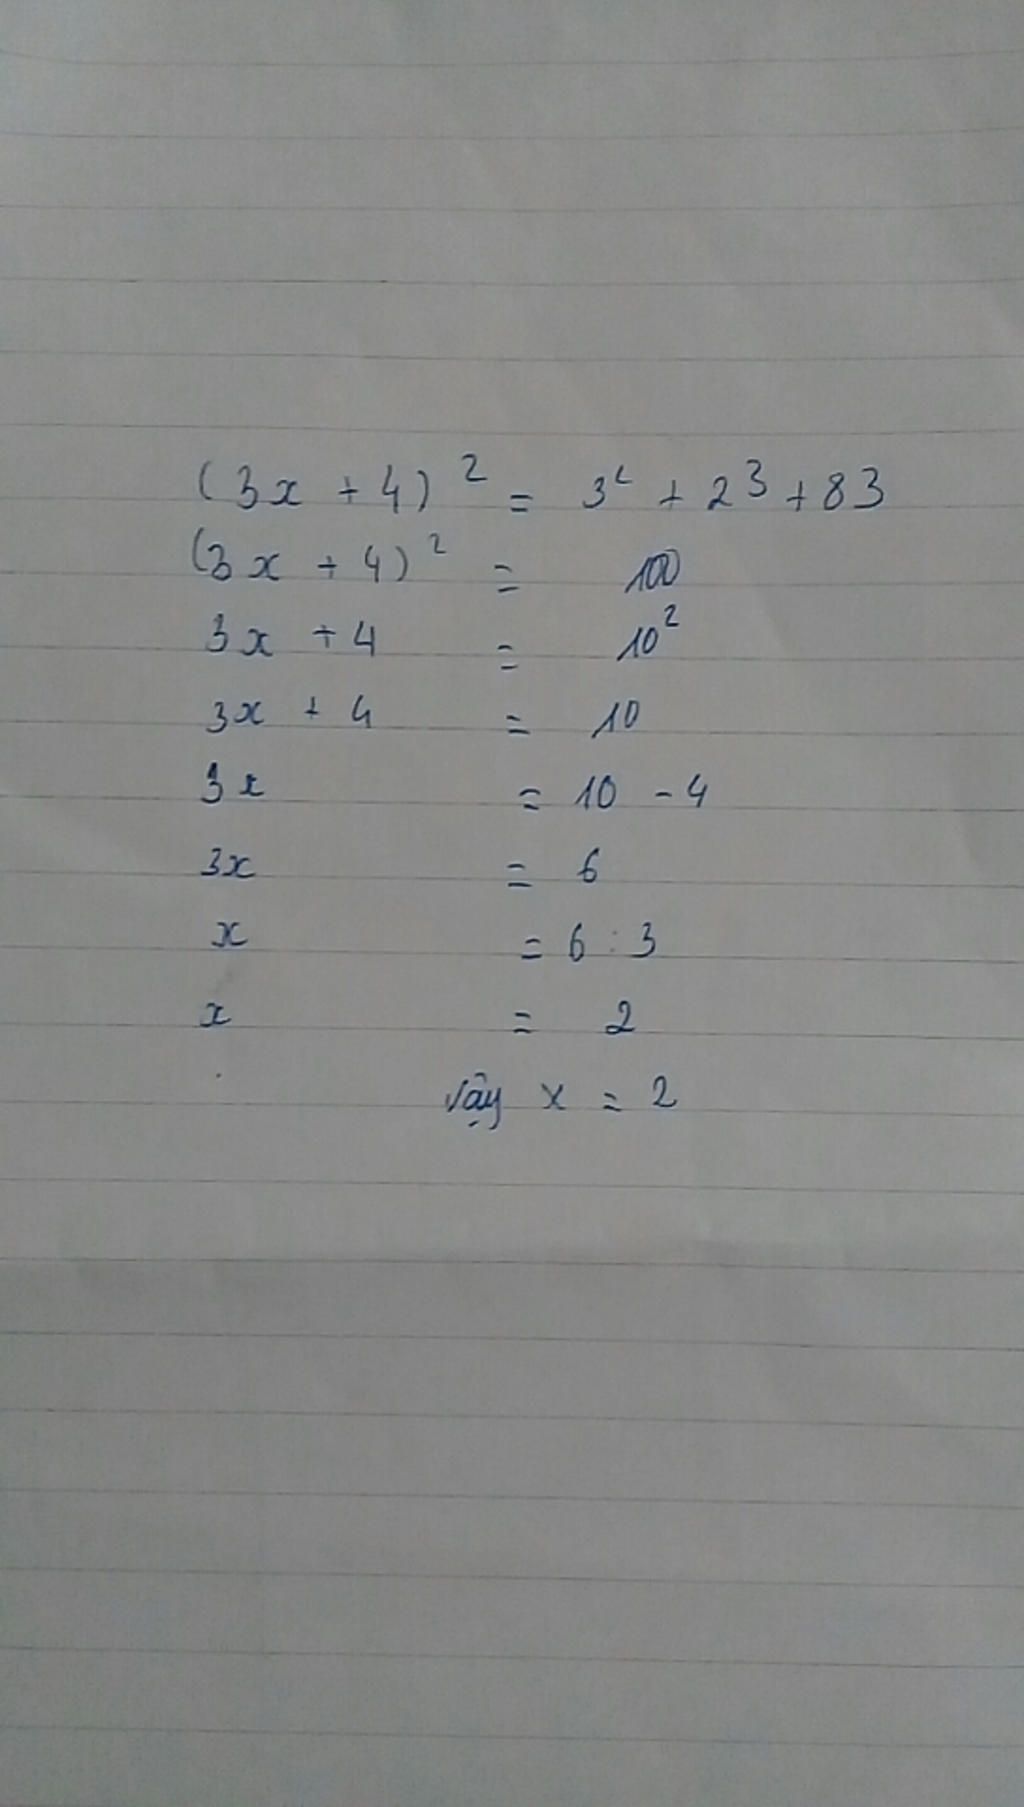 (3x + 4)² = 3² + 2³ + 83
(3x + 4)² = 100
3x + 4 = 10²
3x + 4 = 10
3x = 10 - 4
3x = 6
x = 6 : 3
x = 2
vậy x = 2